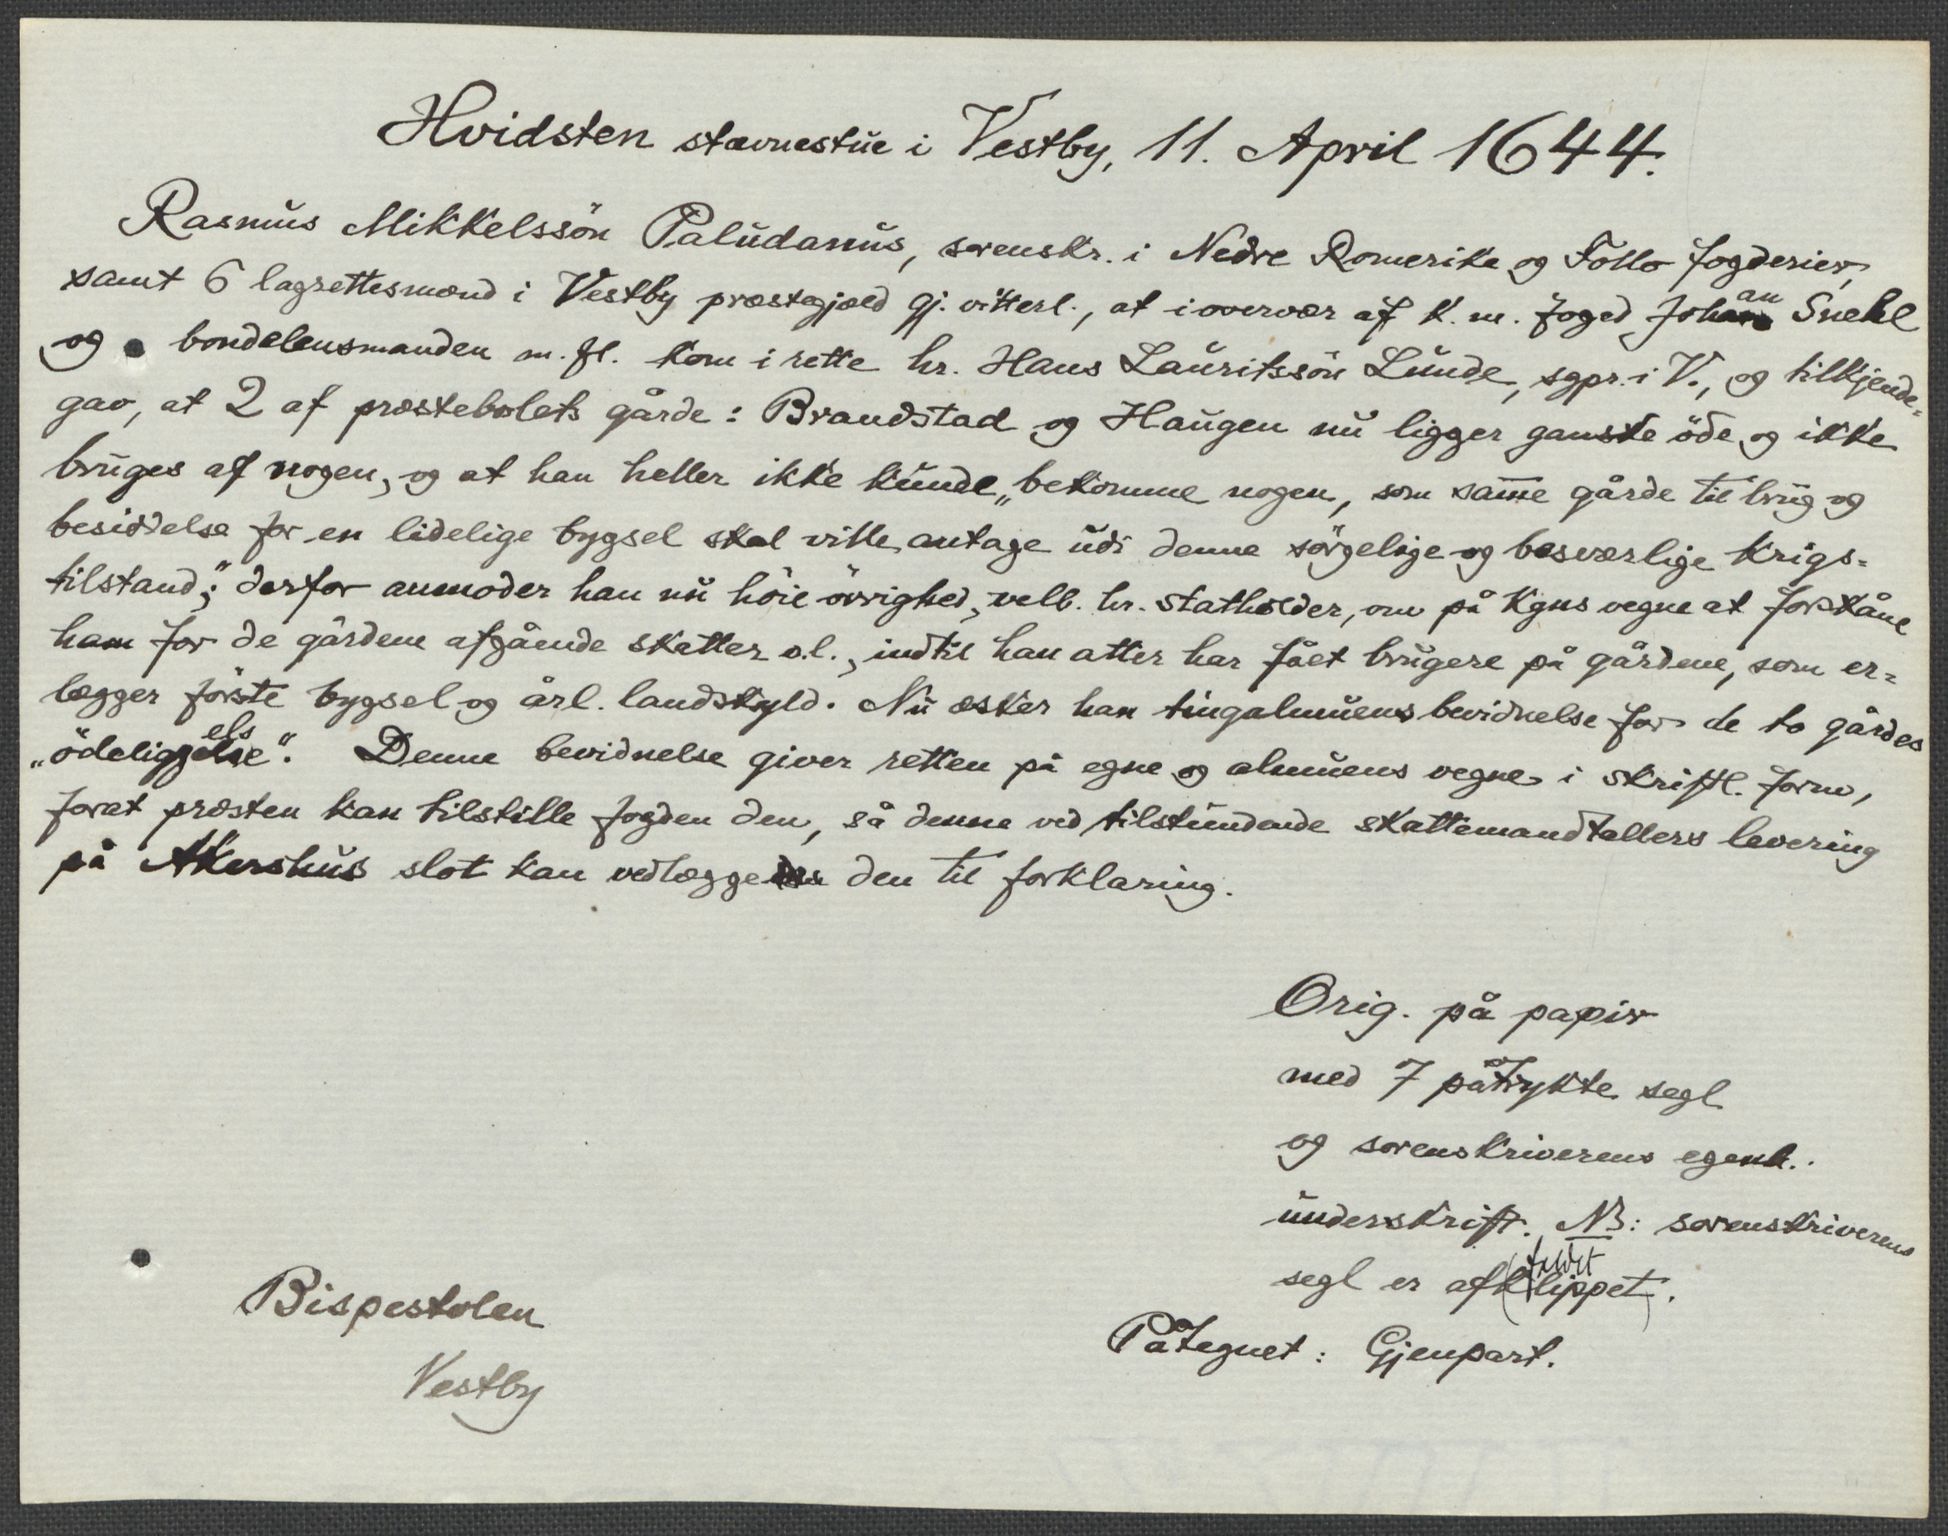 Hvidsten stævnestue i Vestby, 11. April 1644.
Rasmus Mikkelssön Paludanus, sorenskr. i Nedre Romerike og Follo fogderier,
samt 6 lagrettesmænd i Vestby præstegjæld gj. vitterl., at i overvær af k. m. foged Johan Snekl
og bondelensmanden m. fl. kom i rette hr. Hans Lauritssön Lunde, sgpr. i V., og tilkjende-
gav, at 2 af præstebolets gårde: Brandstad og Haugen nu ligger ganske öde og ikke
bruges af nogen, og at han heller ikke kunde „bekomme nogen, som samme gårde til brug og
besiddelse for en lidelige bygsel skal ville antage udi denne sörgelige og besværlige krigs-
tilstand;" derfor anmoder han nu höie övrighed, velb. hr. statholder, om på kgns vegne at forskåne
ham for de gårdene afgående skatter o.l., indtil han atter har fået brugere på gårdene, som er-
lægger förste bygsel og årl. landskyld. Nu æsker han tingalmuens bevidnelse for de to gårdes
„ödeliggelse". Denne bevidnelse giver retten på egne og almuens vegne i skriftl. form,
forat præsten kan tilstille fogden den, så denne ved tilstundende skattemandtallers levering
på Akershus slot kan vedlægge den til forklaring.
Orig. på papir
med 7 påtrykte segl
og sorenskriverens egenh.
underskrift. NB: sorenskriverens
segl er af(klippet) faldet.
Påtegnet: Gjenpart.
Bispestolen
Vestby